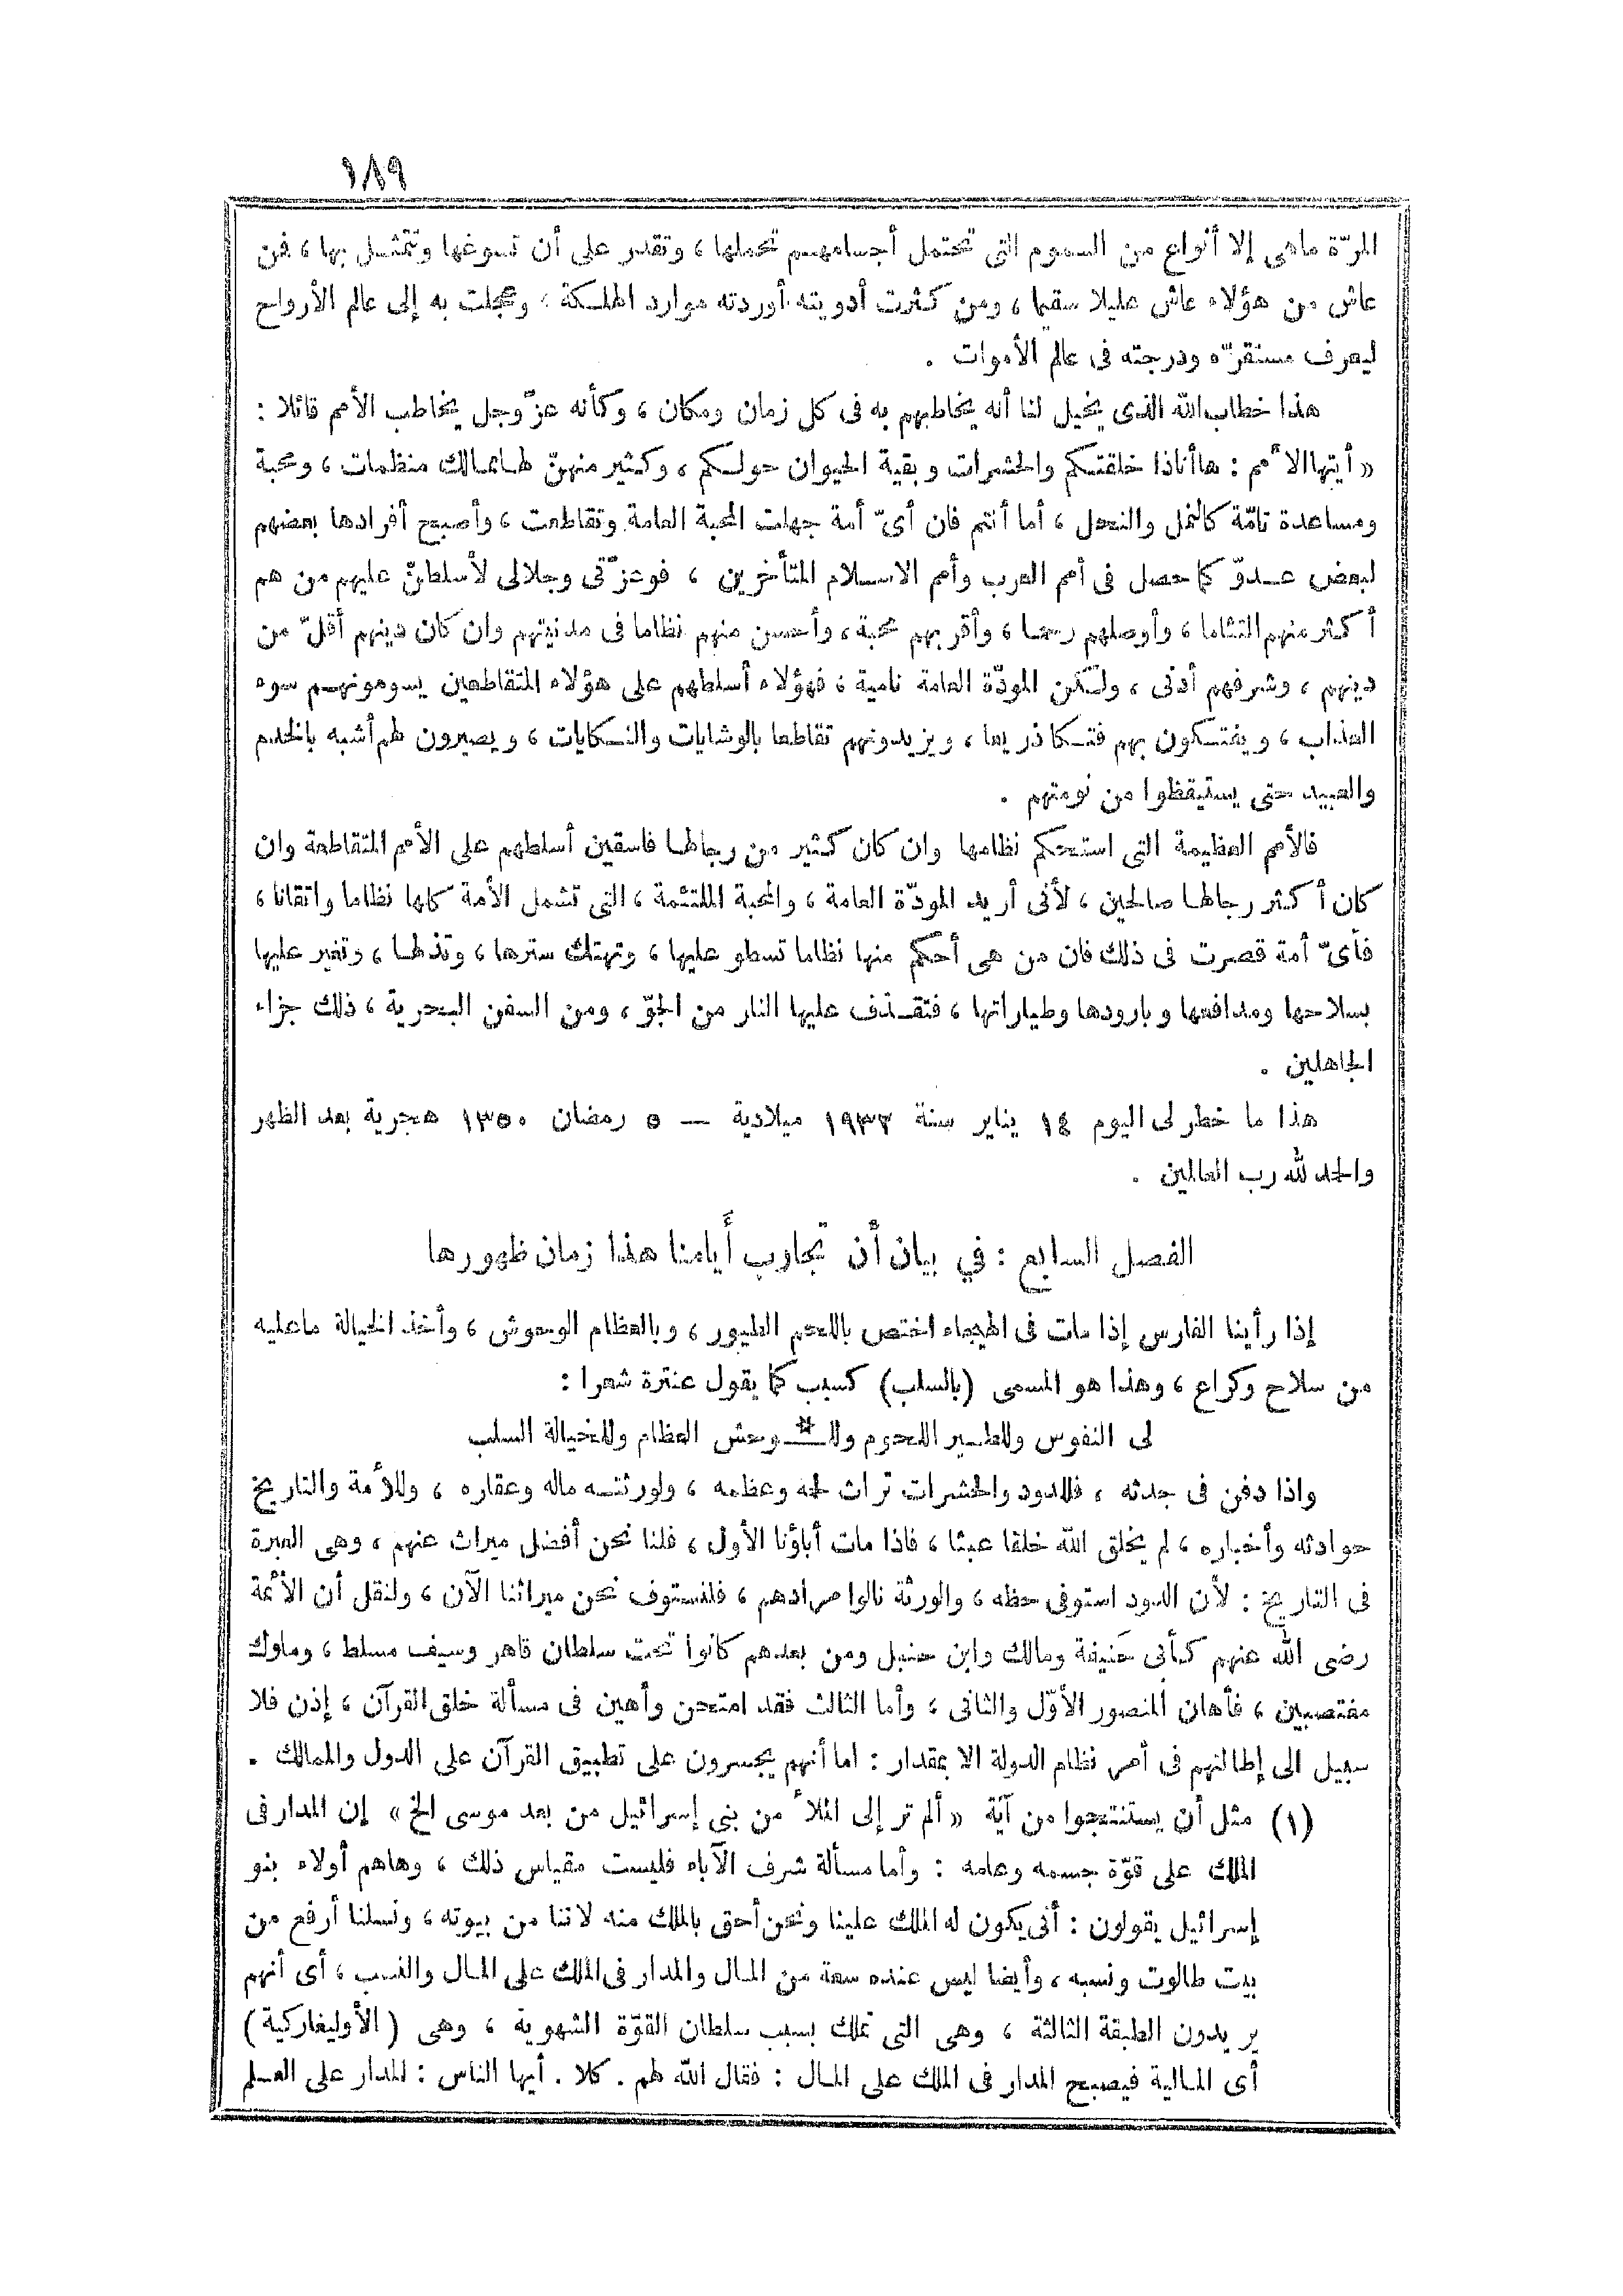 ١٨٩
المرّة ماهى إلا أنواع من السموم التى تحتمل أجسامهم تحملها ، وتقدر على أن تسوغها وتتمثل بها ، فمن
عاش من هؤلاء عاش عليلا سقيما ، ومن كثرت أدويته أوردته موارد الهلكة ، وعجلت به إلى عالم الأرواح
ليعرف مستقرّه ودرجته فى عالم الأموات .
هذا خطاب الله الذى يخيل لنا أنه يخاطبهم به فى كل زمان ومكان ، وكأنه عزّ وجل يخاطب الأمم قائلا :
« أيتها الأمم : هاأناذا خلقتكم والحشرات وبقية الحيوان حولكم ، وكثير منهنّ لها ممالك منظمات ، ومحبة
ومساعدة تامّة كالنمل والنحل ، أما أنتم فان أىّ أمة جهلت المحبة العامة وتقاطعت ، وأصبح أفرادها بعضهم
لبعض عدوّ كما حصل فى أمم العرب وأمم الاسلام المتأخرين ، فوعزّتى وجلالى لأسلطنّ عليهم من هم
أكثر منهم التئاما ، وأوصلهم رحما ، وأقربهم محبة ، وأحسن منهم نظاما فى مدنيتهم وان كان دينهم أقلّ من
دينهم ، وشرفهم أدنى ، ولكن المودّة العامة نامية ، فهؤلاء أسلطهم على هؤلاء المتقاطعين يسومونهم سوء
العذاب ، ويفتكون بهم فتكا ذريعا ، ويزيدونهم تقاطعا بالوشايات والنكايات ، ويصيرون لهم أشبه بالخدم
والعبيد حتى يستيقظوا من نومتهم .
فالأمم العظيمة التى استحكم نظامها وان كان كثير من رجالها فاسقين أسلطهم على الأمم المتقاطعة وان
كان أكثر رجالها صالحين ، لأنى أريد المودّة العامة ، والمحبة الملتئمة ، التى تشمل الأمة كلها نظاما واتقانا ،
فأىّ أمة قصرت فى ذلك فان من هى أحكم منها نظاما تسطو عليها ، وتهتك سترها ، وتذلها ، وتغير عليها
بسلاحها ومدافعها وبارودها وطياراتها ، فتقذف عليها النار من الجوّ ، ومن السفن البحرية ، ذلك جزاء
الجاهلين .
هذا ما خطر لى اليوم ١٤ يناير سنة ١٩٣٢ ميلادية — ٥ رمضان ١٣٥٠ هجرية بعد الظهر
والحمد لله رب العالمين .
الفصل السابع : في بيان أن تجارب أيامنا هذا زمان ظهورها
إذا رأينا الفارس إذا مات فى الهيجاء اختص باللحم الطيور ، وبالعظام الوحوش ، وأخذ الخيالة ماعليه
من سلاح وكراع ، وهذا هو المسمى (بالسلب) كسبب كما يقول عنترة شعرا :
لى النفوس وللطير اللحوم وللـ * ـوحش العظام وللخيالة السلب
واذا دفن فى جدثه ، فللدود والحشرات تراث لحمه وعظمه ، ولورثته ماله وعقاره ، وللأمة والتاريخ
حوادثه وأخباره ، لم يخلق الله خلقا عبثا ، فاذا مات أباؤنا الأول ، فلنا نحن أفضل ميراث عنهم ، وهى العبرة
فى التاريخ : لأن الدود استوفى حظه ، والورثة نالوا مرادهم ، فلنستوف نحن ميراثنا الآن ، ولنقل أن الأئمة
رضى الله عنهم كأبى حنيفة ومالك وابن حنبل ومن بعدهم كانوا تحت سلطان قاهر وسيف مسلط ، وملوك
مغتصبين ، فأهان المنصور الأوّل والثانى ، وأما الثالث فقد امتحن وأهين فى مسألة خلق القرآن ، إذن فلا
سبيل الى إطالتهم فى أمر نظام الدولة الا بمقدار : اما أنهم يجسرون على تطبيق القرآن على الدول والممالك .
(١) مثل أن يستنتجوا من آية « ألم تر إلى الملأ من بنى إسرائيل من بعد موسى الخ » إن المدار فى
الملك على قوّة جسمه وعلمه : وأما مسألة شرف الآباء فليست مقياس ذلك ، وهاهم أولاء بنو
إسرائيل يقولون : أنى يكون له الملك علينا ونحن أحق بالملك منه لاننا من بيوته ، ونسلنا أرفع من
بيت طالوت ونسبه ، وأيضا ليس عنده سعة من المال والمدار فى الملك على المال والنسب ، أى أنهم
يريدون الطبقة الثالثة ، وهى التى تملك بسبب سلطان القوّة الشهوية ، وهى (الأوليغاركية)
أى المالية فيصبح المدار فى الملك على المال : فقال الله لهم . كلا . أيها الناس : المدار على العلم